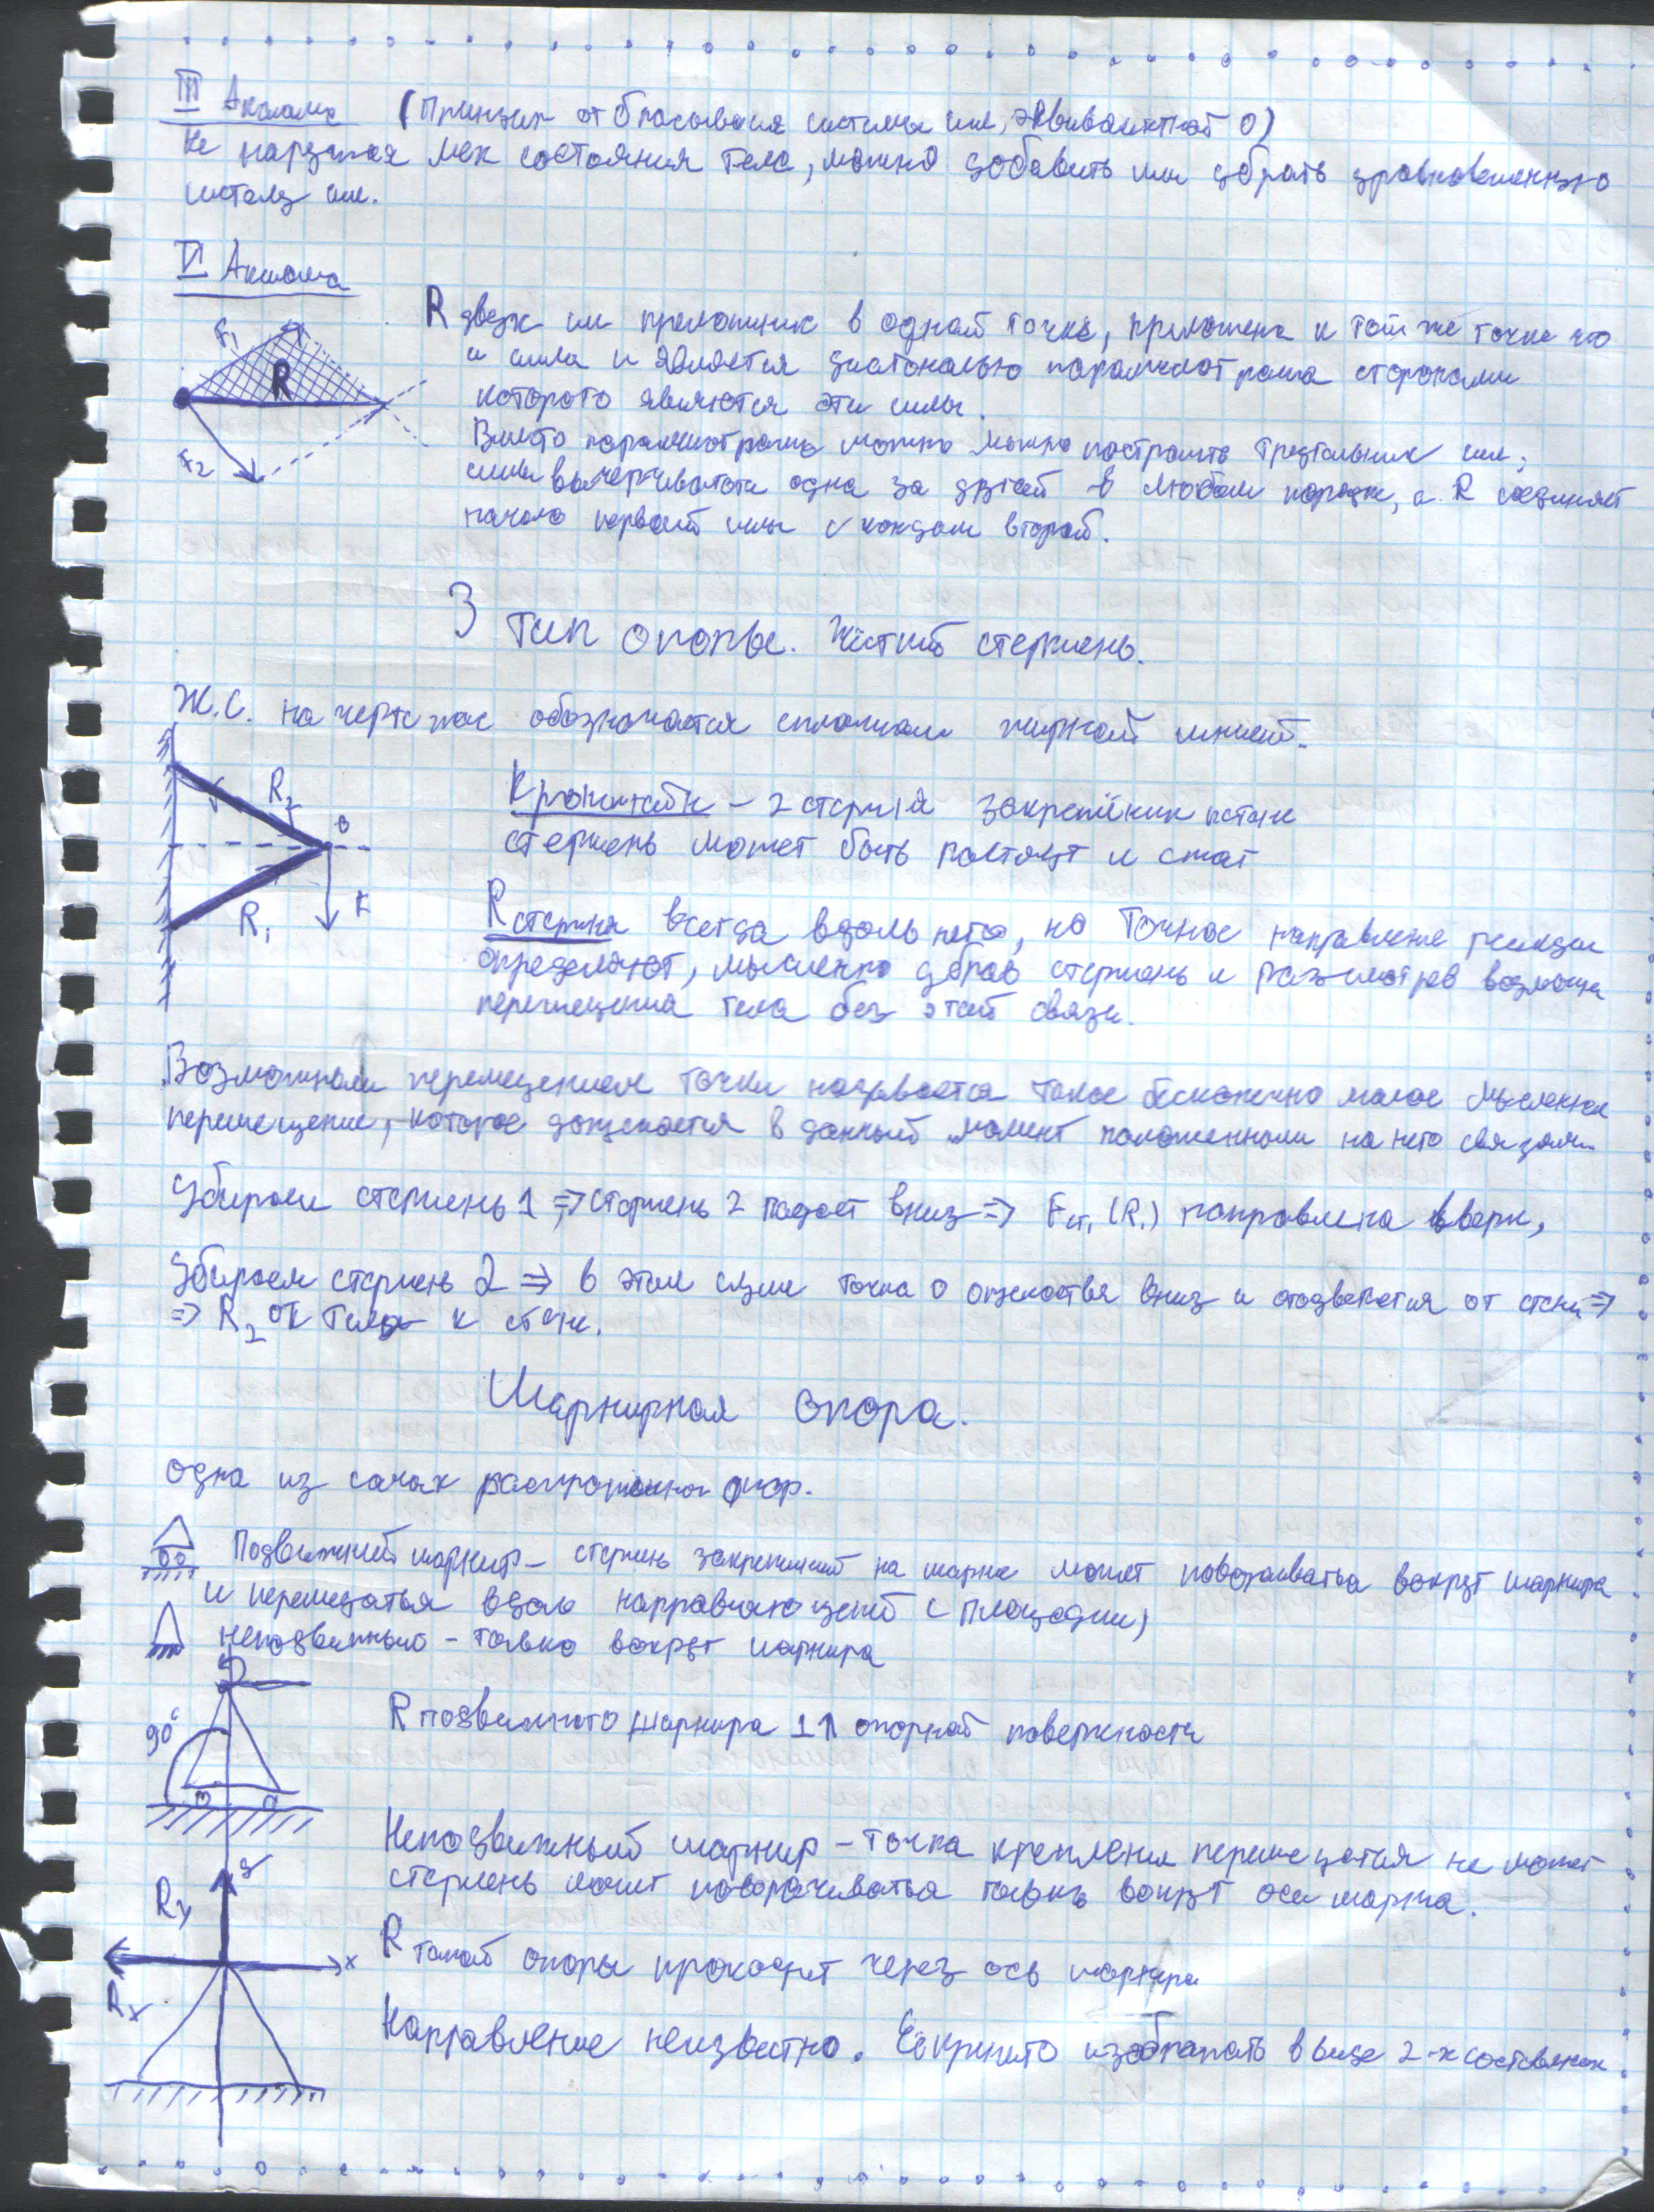 III Аксиома (Принцип отбрасывания системы сил, эквивалентной 0)
Не нарушая мех состояния тела, можно добавить или убрать уравновешенную
систему сил.
V Аксиома
F1
R
F2
R двух сил приложеных в одной точке, приложена к той же точке что
и силы и является диагональю параллелограма сторонами
которого являются эти силы.
Вместо параллелограма можно можно построить треугольник сил;
силы вычерчиваются одна за другой в любом порядке, а R соединяет
начало первой силы с концом второй.
3 Тип опоры. Жёсткий стержень.
Ж.С. на чертежах обозначается сплошной жирной линией.
R2
R1
F
Кронштейн – 2 стержня закреплёных к стене
стержень может быть растянут и сжат
R стержня всегда вдоль него, но точное направление реакции
определяют, мысленно убрав стержень и рассмотрев возможные
перемещения тела без этой связи.
Возможным перемещением точки называется такое бесконечно малое мысленное
перемещение, которое допускается в данный момент наложенными на него связями.
Убираем стержень 1 => стержень 2 падает вниз => Fст1 (R1) направлена вверх,
Убираем стержень 2 => в этом случи точка о опускается вниз и отодвигается от стены =>
=> R2 от тела к стене.
Шарнирная опора.
Одна из самых распространённых опор.
Подвижный шарнир – стержень закреплёный на шарнире может поворачиваться вокруг шарнира
и перемещаться вдоль направляющей (площадки)
неподвижный – только вокруг шарнира
90°
R подвижного шарнира ⊥ опорной поверхности
Неподвижный шарнир – точка крепления перемещатся не может
стержень может поворачиваться только вокруг оси шарнира.
y
Ry
x
Rx
R такой опоры проходит через ось шарнира
Направление неизвестно. Её принято изображать в виде 2-х составляющих